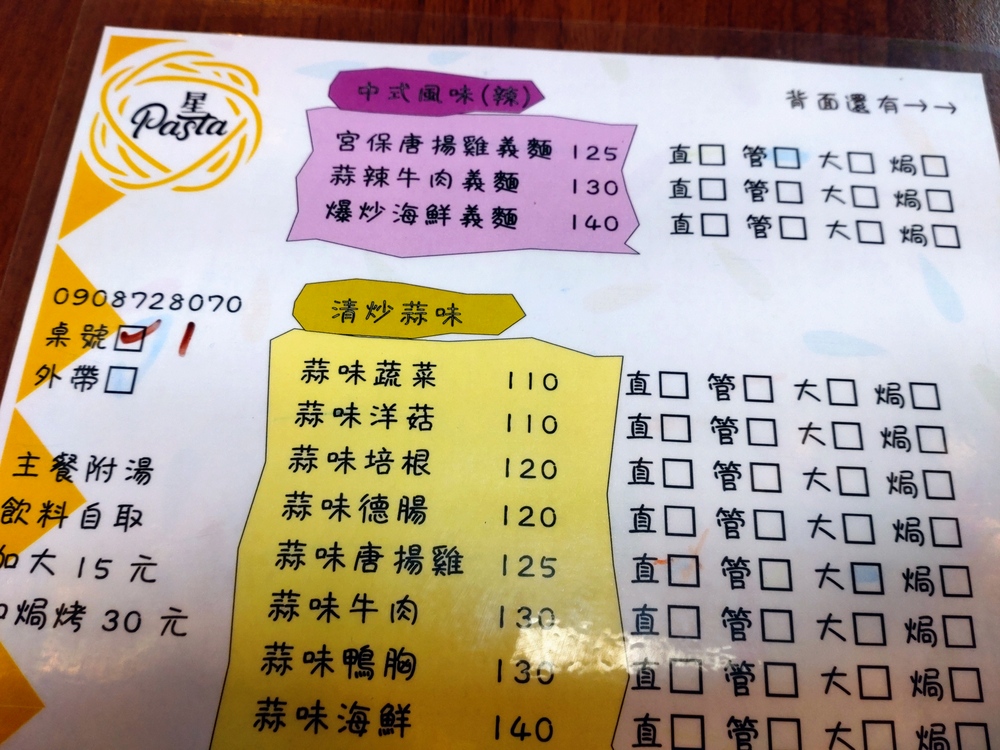 星
Pasta
中式風味(辣)
背面還有→→
宮保唐揚雞義麵 125 直□ 管□ 大□ 焗□
蒜辣牛肉義麵 130 直□ 管□ 大□ 焗□
爆炒海鮮義麵 140 直□ 管□ 大□ 焗□
0908728070
桌號☑ 1
外帶□
主餐附湯
飲料自取
加大 15 元
焗烤 30 元
清炒蒜味
蒜味蔬菜 110 直□ 管□ 大□ 焗□
蒜味洋菇 110 直□ 管□ 大□ 焗□
蒜味培根 120 直□ 管□ 大□ 焗□
蒜味德腸 120 直□ 管□ 大□ 焗□
蒜味唐揚雞 125 直□ 管□ 大□ 焗□
蒜味牛肉 130 直□ 管□ 大□ 焗□
蒜味鴨胸 130 直□ 管□ 大□ 焗□
蒜味海鮮 140 直□ 管□ 大□ 焗□